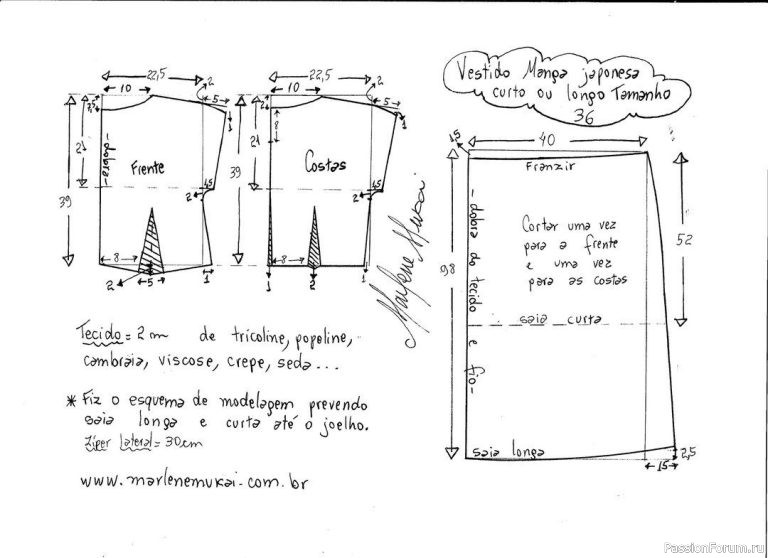 Vestido Manga japonesa
curto ou longo Tamanho
36
22,5
2
10
5
7,5
1
39
21
-dobra-
Frente
1,5
2
8
2
5
1
22,5
2
10
5
2
8
1
39
21
Costas
1,5
2
8
1
2
1
Marlene Mukai
1,5
40
Franzir
98
-dobra do tecido e fio-
Cortar uma vez
para a frente
e uma vez
para as costas
52
saia curta
saia longa
15
2,5
Tecido = 2m de tricoline, popeline,
cambraia, viscose, crepe, seda...
* Fiz o esquema de modelagem prevendo
saia longa e curta até o joelho.
Zíper lateral = 30cm
www.marlenemukai.com.br
PassionForum.ru